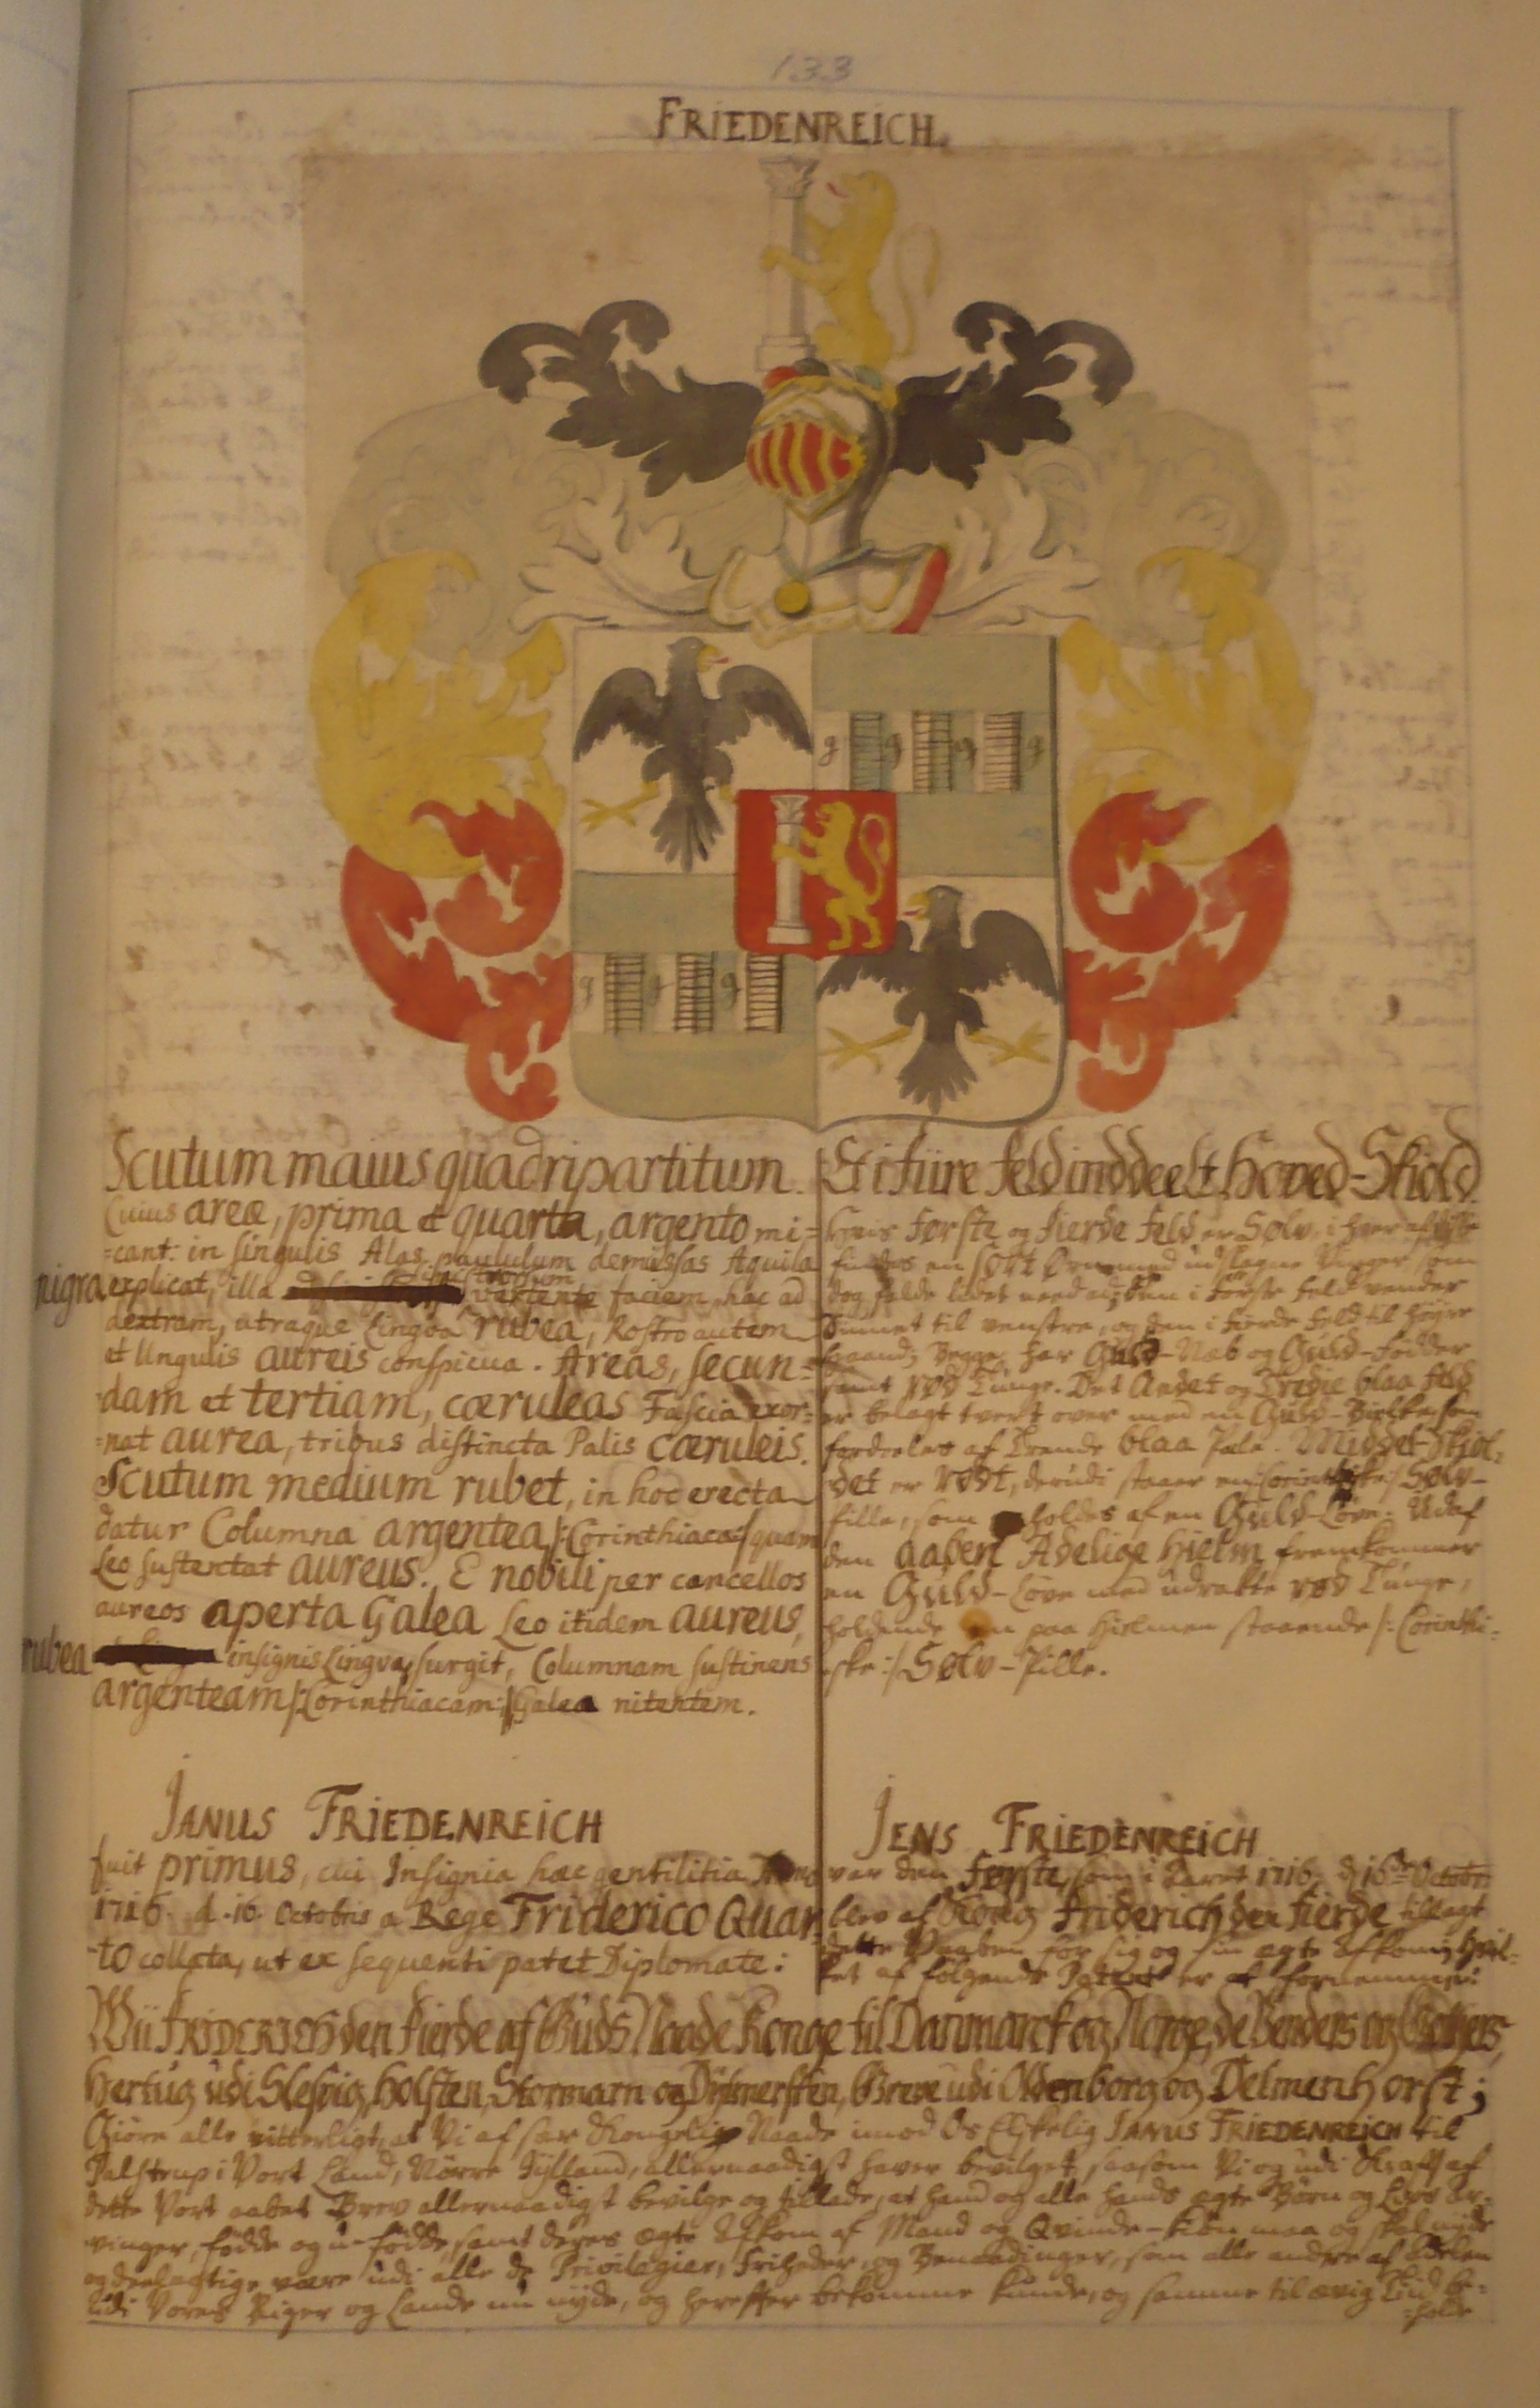 133
FRIEDENREICH.
g g g g
g g g
Scutum maius quadripartitum.
Cuius areæ, prima et quarta, argento mi=
=cant: in singulis Alas paululum demissas Aquila
nigra explicat, illa sinistrorsum vertente faciem, hac ad
dextram, utraque Lingva rubea, Rostro autem
et Ungulis aureis conspicua. Areas, secun=
dam et tertiam, cæruleas Fascia exor=
=nat aurea, tribus distincta Palis cæruleis.
Scutum medium rubet, in hoc erecta
datur Columna argentea /:Corinthiaca:/ quam
Leo sustentat aureus. E nobili per cancellos
aureos aperta Galea Leo itidem aureus,
rubea insignis Lingva, surgit, Columnam sustinens
argenteam /:Corinthiacam:/ Galea nitentem.
Et i fiire feld inddeelt Hoved-Skiold.
Hvis første og fierde feld er Sølv, i hver af
findes en sort Ørn med udslagne Vinger som
dog falde lidet ned ad; den i første feld vender
til venstre, og den i fierde feld til høyre
haand; begge har Guld-Næb og Guld-fødder
samt rød Tunge. Det Andet og Tredie blaa feld
er belagt tvert over med en Guld-Bielke som
fordeeles af Trende blaa Pæle. Middel-Skiol=
det er rødt, derudi staaer en /:Corinthiske:/ Sølv-
Pille, som holdes af en Guld-Løve. Udaf
den aaben Adelige Hielm fremkommer
en Guld-Løve med udrakte rød Tunge,
holdende en paa Hielmen staaende /: Corinthi=
=ske :/ Sølv-Pille.
JANUS FRIEDENREICH
fuit primus, cui Insignia hæc gentilitia Anno
1716. d. 16. Octobris a Rege Friderico Quar=
=to collata, ut ex sequenti patet Diplomate:
JENS FRIEDENREICH
var den første, som i Aaret 1716, d. 16de Octobr:
blev af Kong Friderich den fierde tillagt
dette Vaaben for sig og sin ægte Afkom; hvil=
ket af følgende Patent er at fornemme:
Wii FRIDERICH den fierde af Guds Naade Konge til Danmarck og Norge, de Venders og Gothers,
Hertug udi Slesvig, Holsten, Stormarn og Dytmersken, Greve udi Oldenborg og Delmenhorst;
Giøre alle vitterligt, at Vi af sær Kongelig Naade imod Os Elskelig JANUS FRIEDENREICH til
Palstrup i Vort Land, Nørre Jylland, allernaadigst haver bevilget, saasom Vi og udi Kraft af
dette Vort aabet Brev allernaadigst bevilge og tillade, at hand og alle hands ægte Børn og Livs Ar=
vinger, fødde og u-fødde, samt deres ægte Afkom af Mand og Qvinde-Kiøn maa og skal nyde
og deelagtige være udi alle de Privilegier, Friheder, og Benaadinger, som alle andre af Adelen
udi Vores Riger og Lande nu nyde, og herefter bekomme kunde, og samme til ævig Tiid be=
=holde